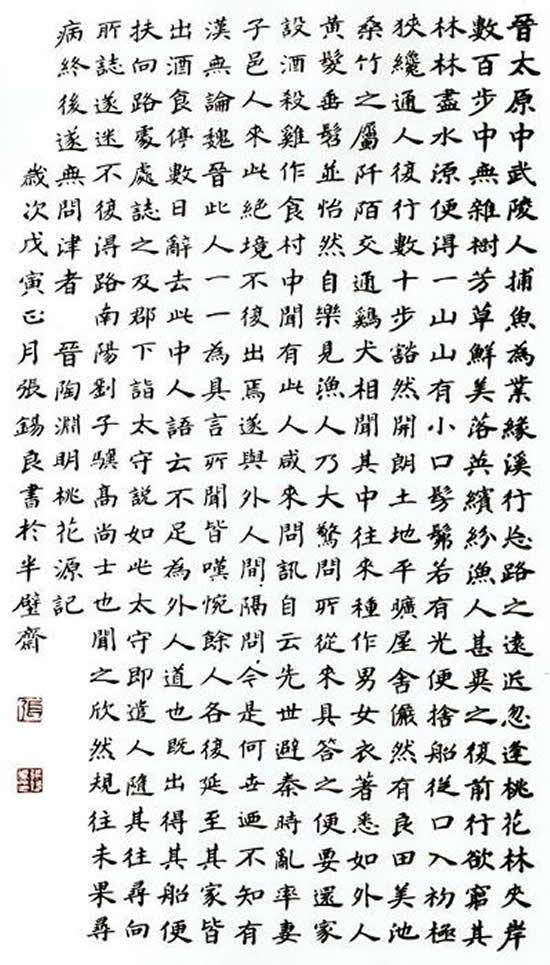 晉太原中武陵人捕魚為業緣溪行忘路之遠近忽逢桃花林夾岸
數百步中無雜樹芳草鮮美落英繽紛漁人甚異之復前行欲窮其
林林盡水源便得一山山有小口髣髴若有光便捨船從口入初極
狹纔通人復行數十步豁然開朗土地平曠屋舍儼然有良田美池
桑竹之屬阡陌交通鷄犬相聞其中往來種作男女衣著悉如外人
黃髮垂髫並怡然自樂見漁人乃大驚問所從來具答之便要還家
設酒殺雞作食村中聞有此人咸來問訊自云先世避秦時亂率妻
子邑人來此絕境不復出焉遂與外人間隔問今是何世迺不知有
漢無論魏晉此人一一為具言所聞皆嘆惋餘人各復延至其家皆
出酒食停數日辭去此中人語云不足為外人道也既出得其船便
扶向路處處誌之及郡下詣太守說如此太守即遣人隨其往尋向
所誌遂迷不復得路南陽劉子驥高尚士也聞之欣然規往未果尋
病終後遂無問津者 晉陶淵明桃花源記
歲次戊寅正月張錫良書於半璧齋